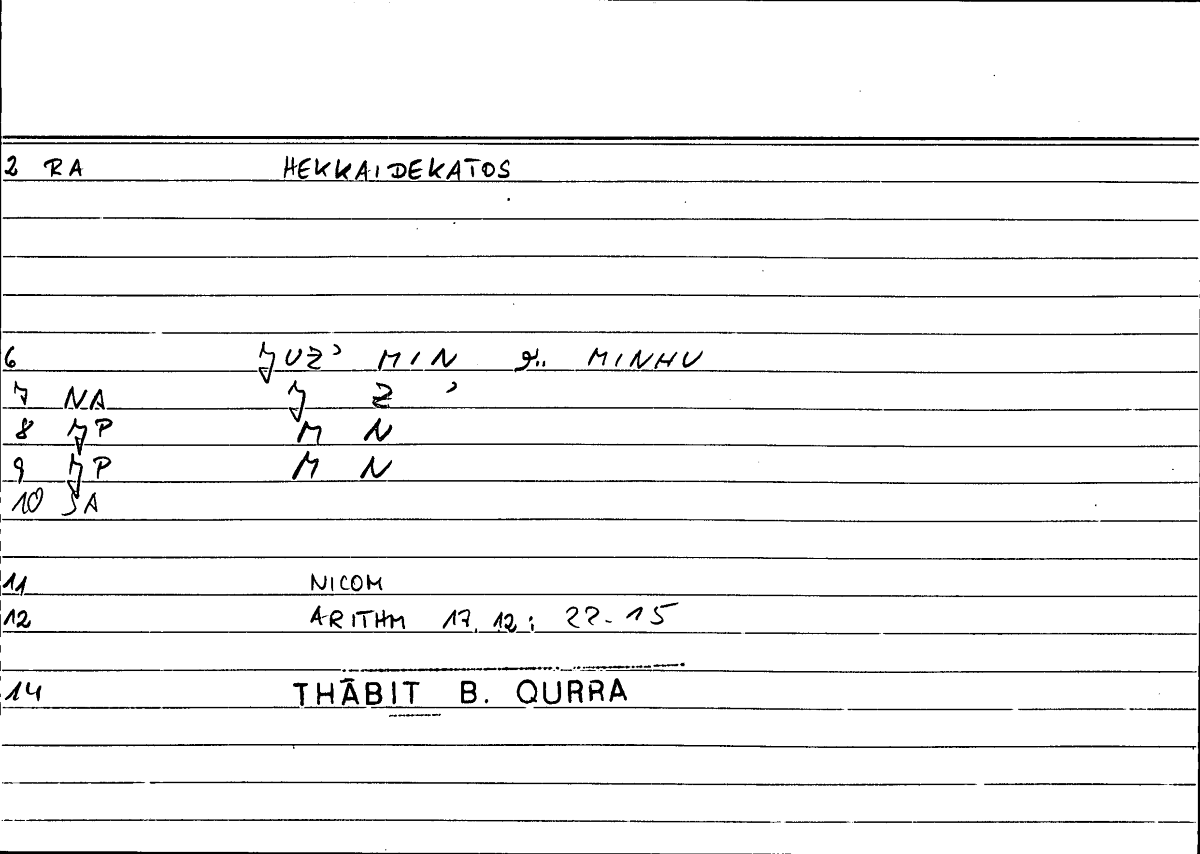 2 RA HEKKAIDEKATOS
6 J̌UZ' MIN MINHU
7 NA J̌ Z '
8 J̌P M N
9 J̌P M N
10 SA
11 NICOM
12 ARITHM 17,12; 22-15
14 THĀBIT B. QURRA